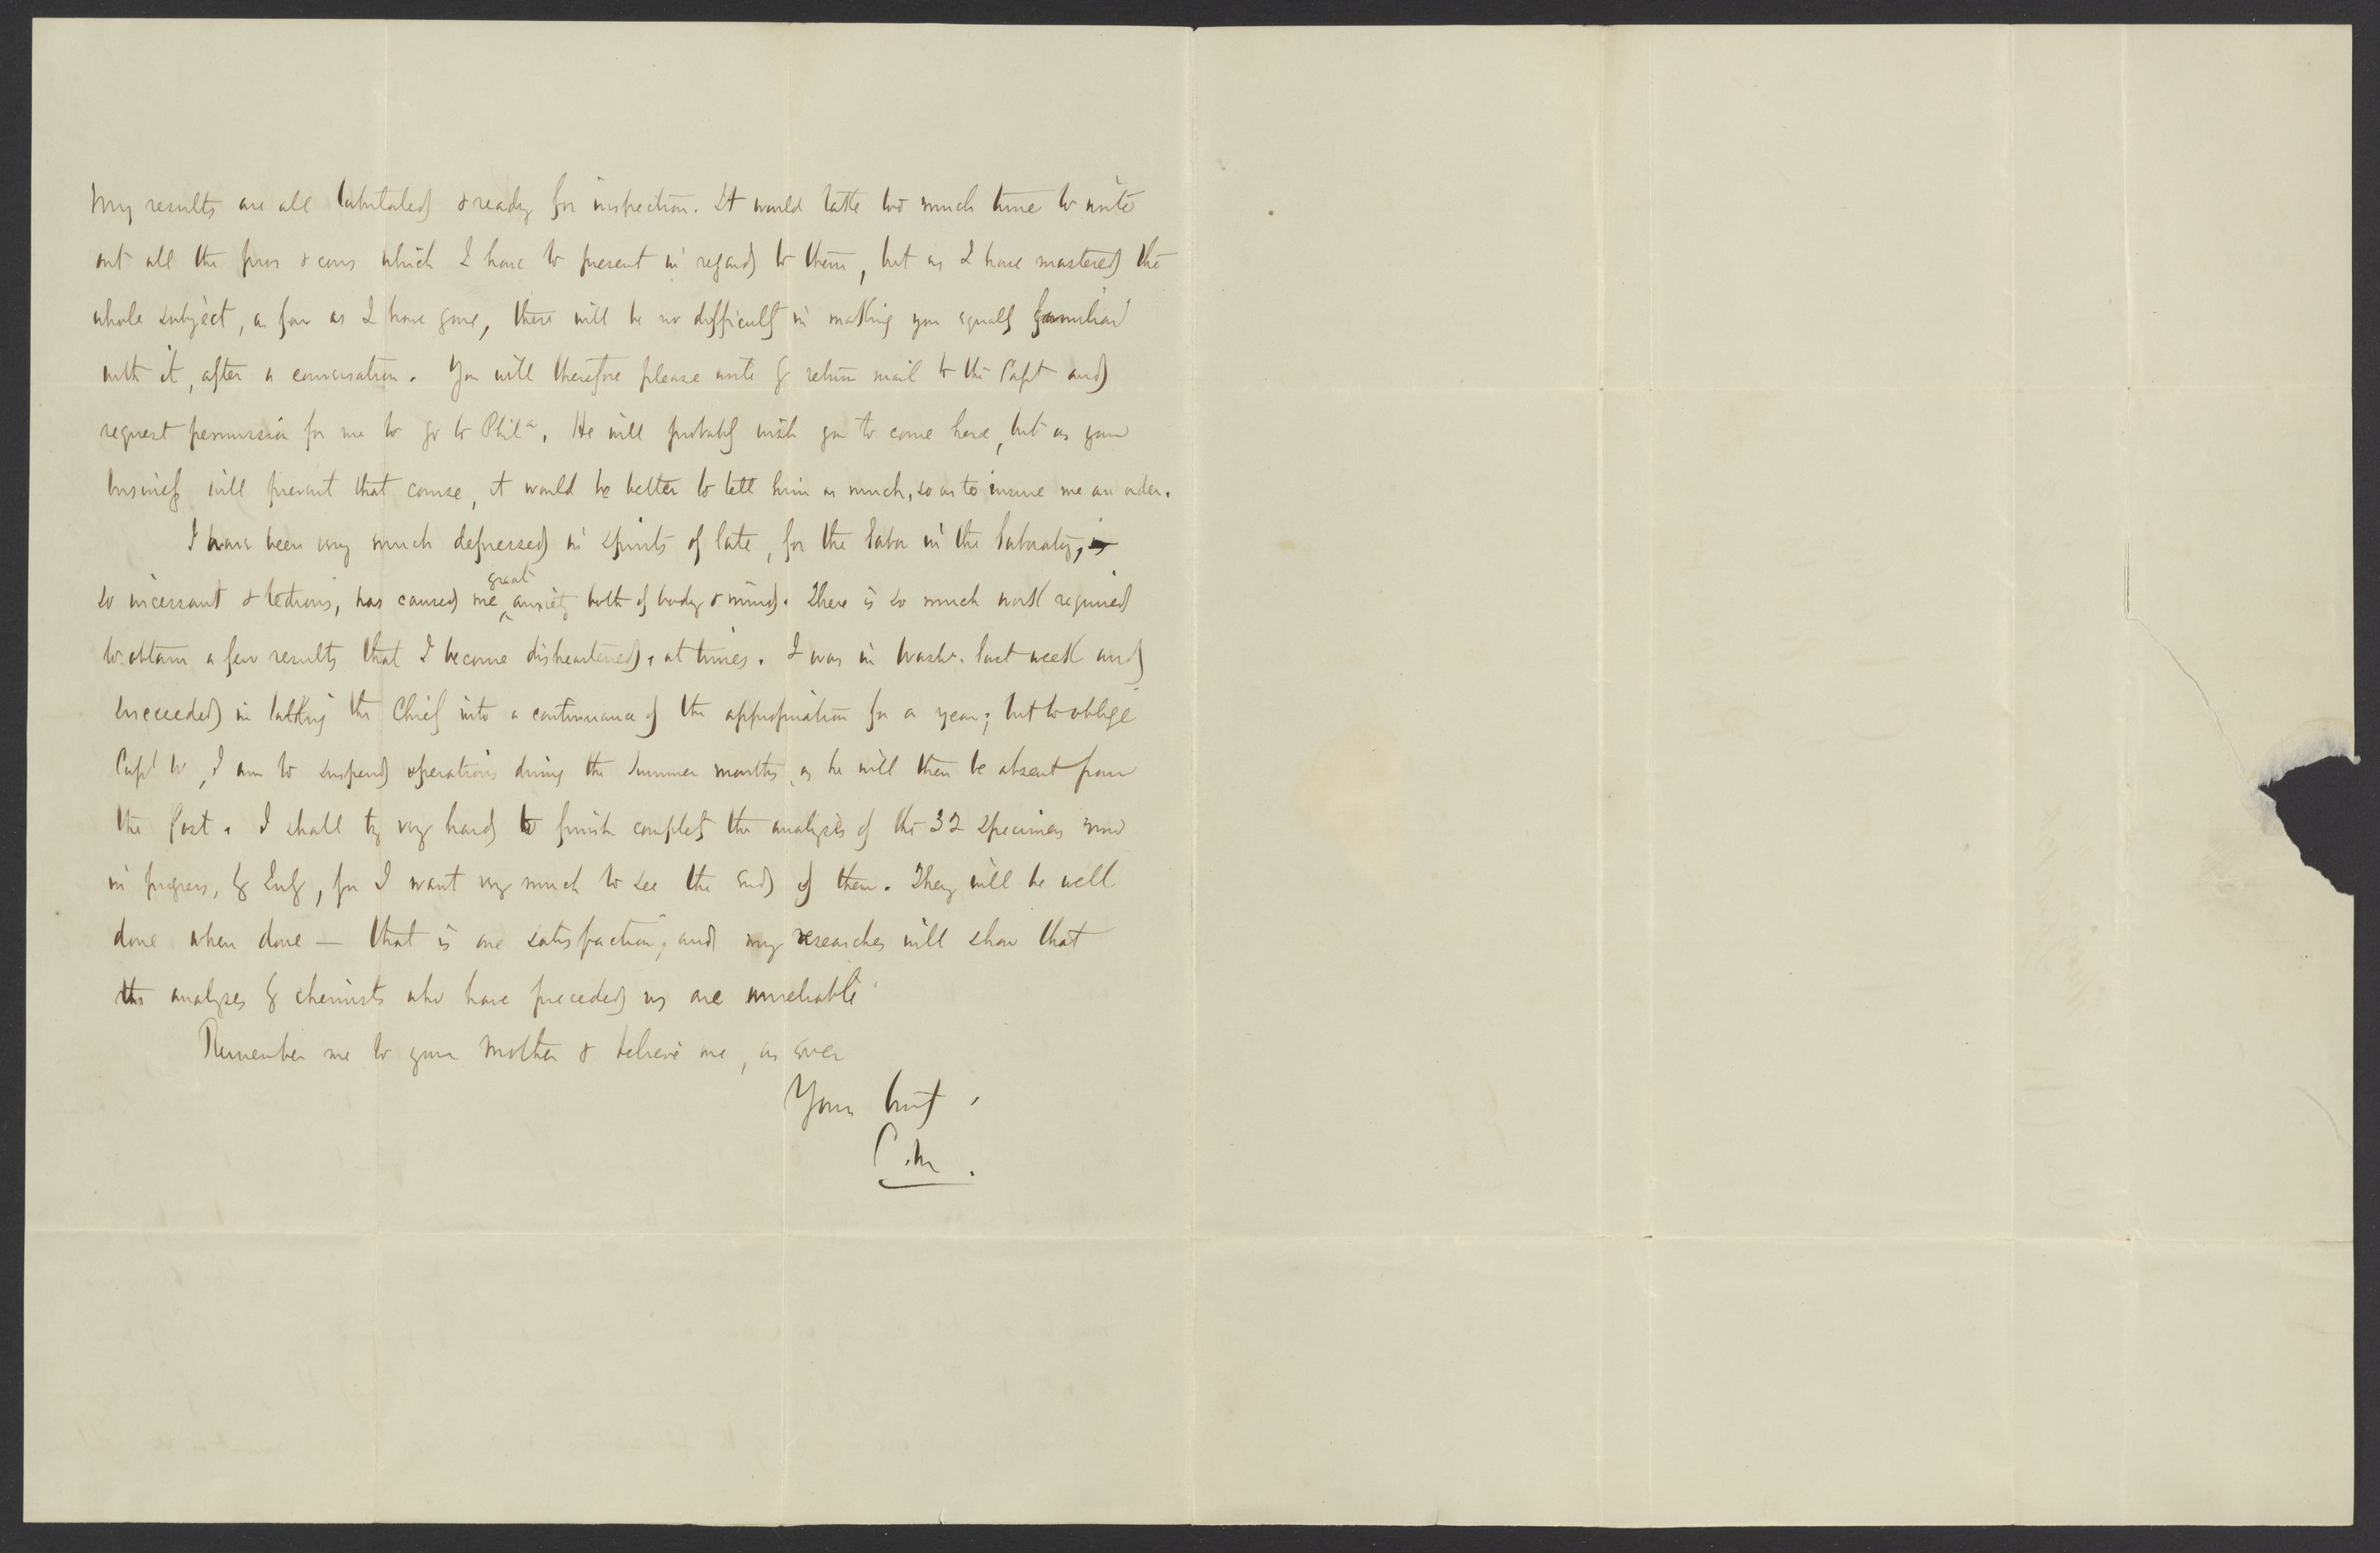 My results are all tabulated & ready for inspection. It would take too much time to write
out all the pros & cons which I have to present in regard to them, but as I have mastered the
whole subject, as far as I have gone, there will be no difficulty in making you equally familiar
with it, after a conversation. You will therefore please write by return mail to the Capt and
request permission for me to go to Phila. He will probably wish you to come here, but as your
business will prevent that course, it would be better to tell him as much, so as to insure me an order.
I have been very much depressed in spirits of late, for the labor in the laboratory, is
great
so incessant & tedious, has caused me ^ anxiety both of body & mind. There is so much work required
to obtain a few results that I become disheartened, at times. I was in Washn. last week and
succeeded in talking the Chief into a continuance of the appropriation for a year; but to oblige
Capt W, I am to suspend operations during the Summer months, as he will then be absent from
the Post. I shall try very hard to finish completely the analysis of the 32 specimens now
in progress, by July, for I want very much to see the end of them. They will be well
done when done — that is one satisfaction; and my researches will show that
the analyses by chemists who have preceded us are unreliable
Remember me to your Mother & believe me, as ever
Yours truly,
C.M.